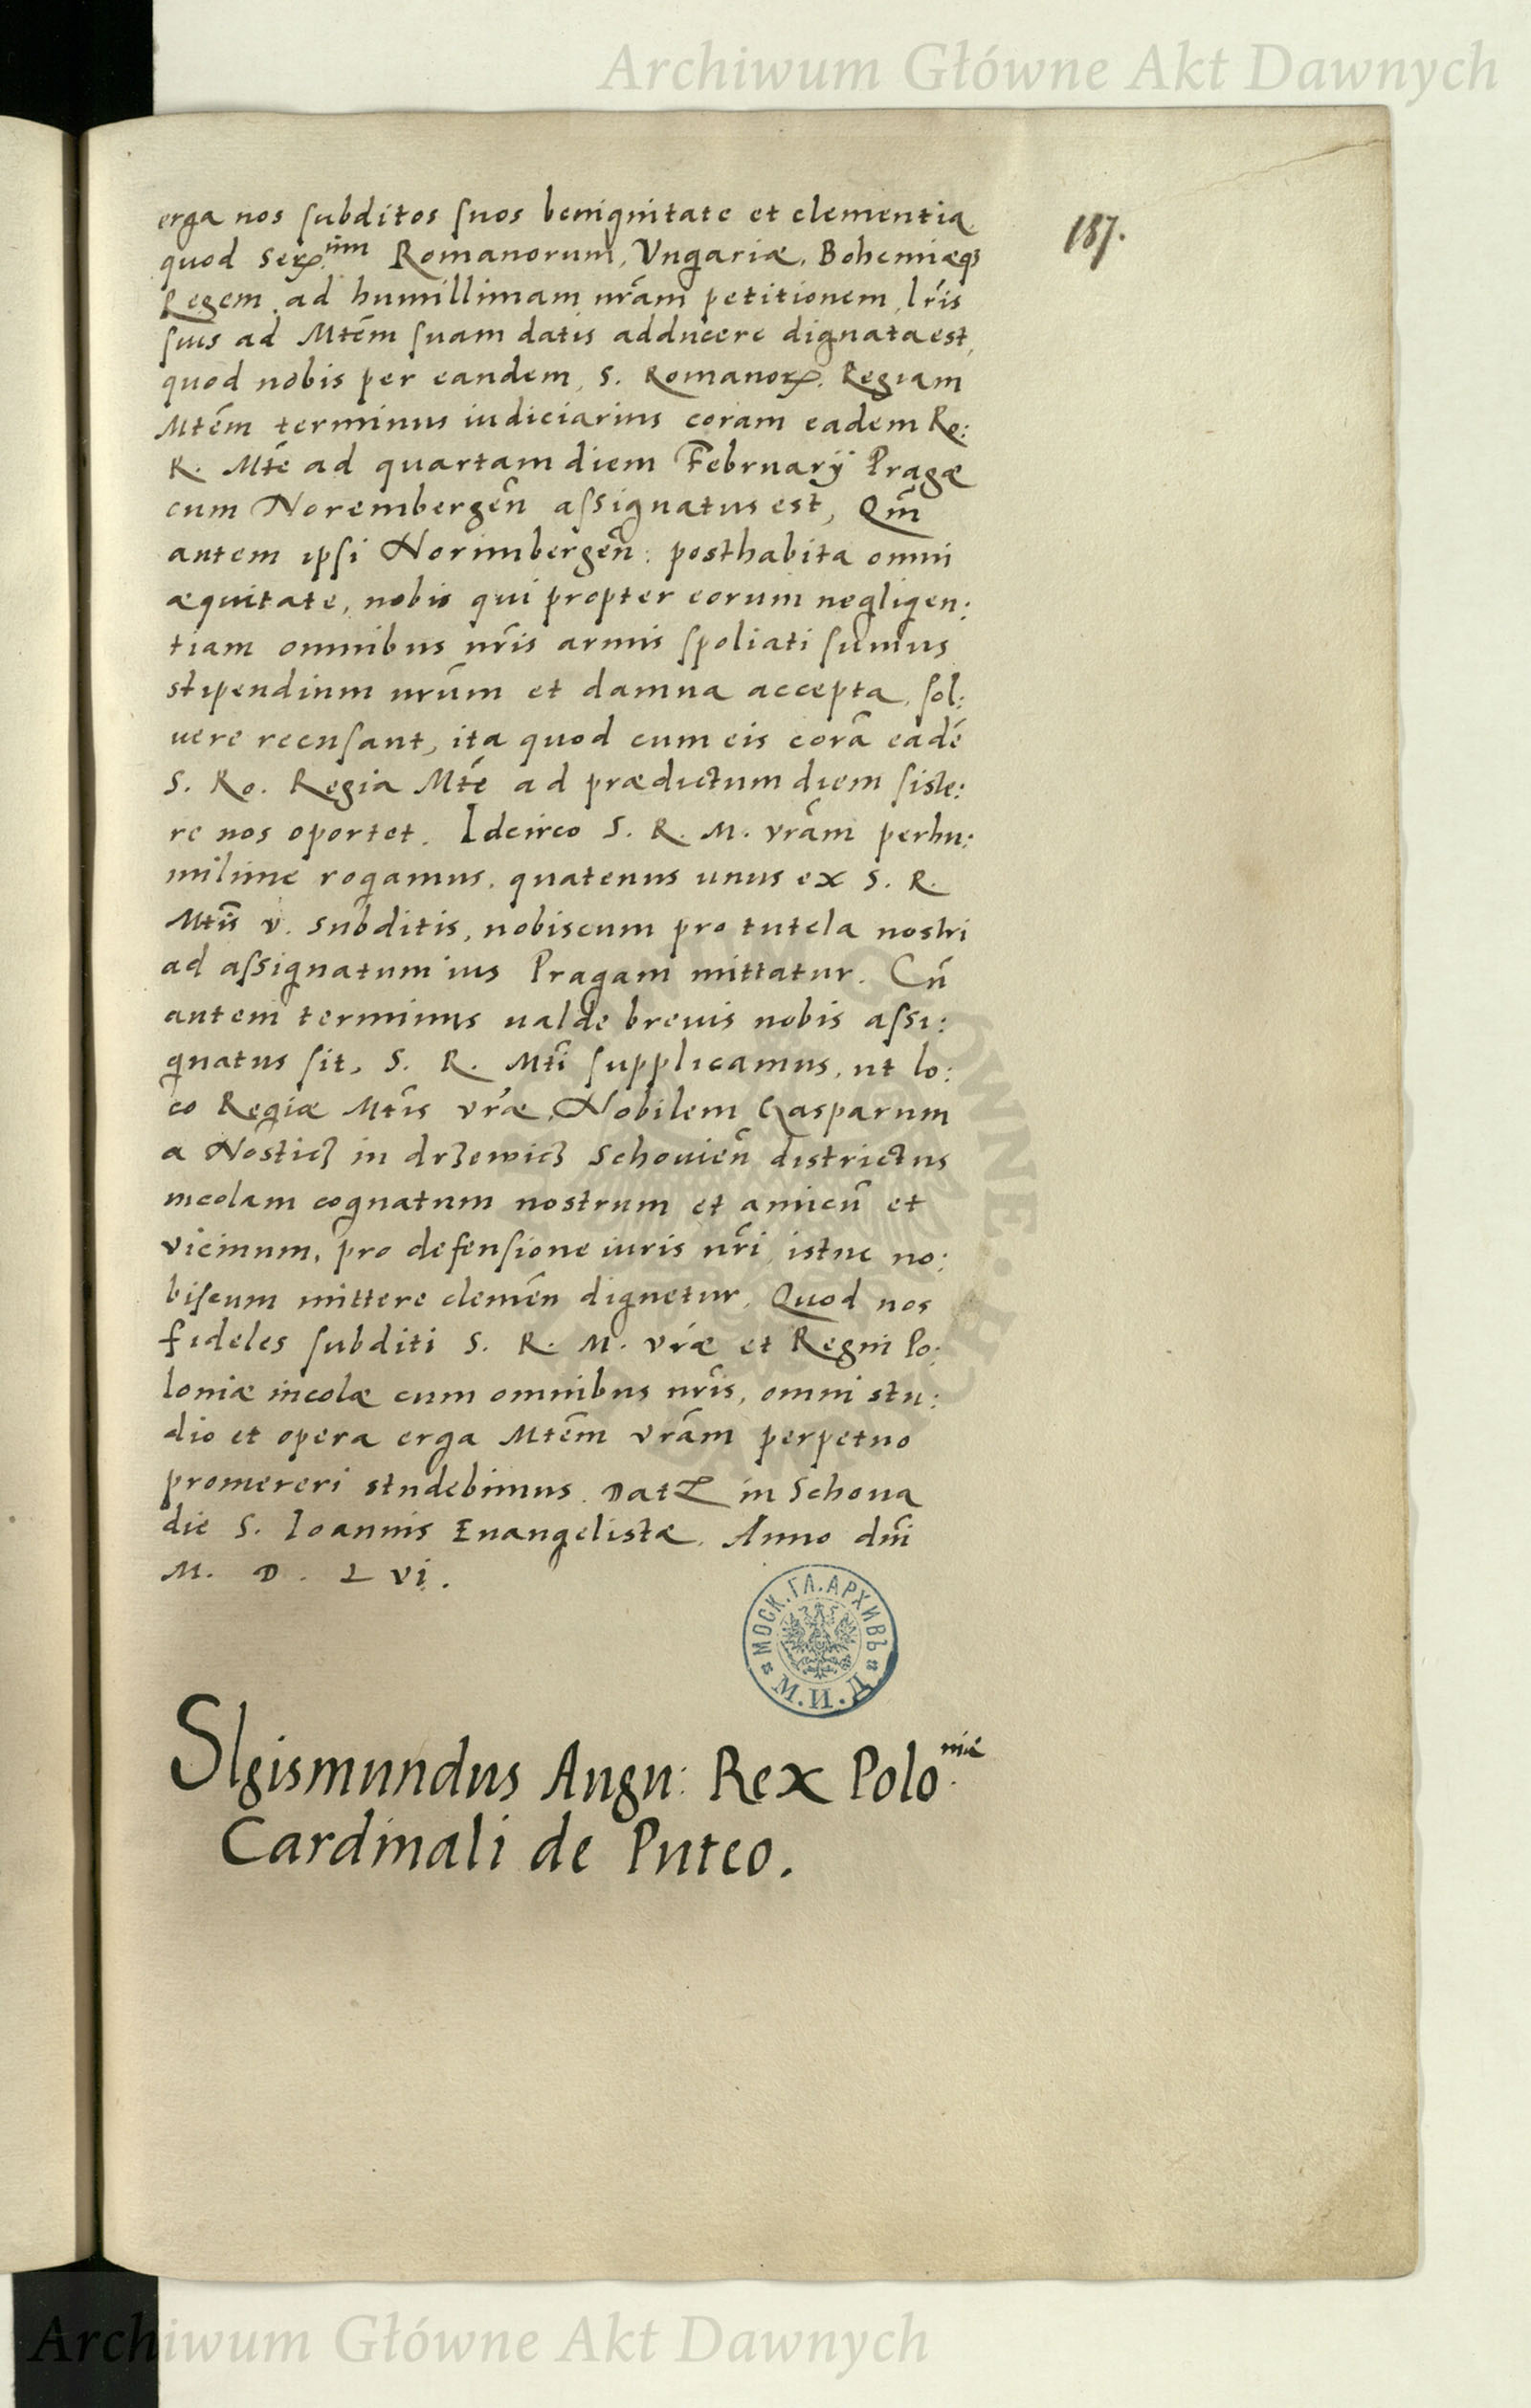 Archiwum Główne Akt Dawnych
187.
erga nos subditos suos benignitate et clementia
quod Ser.mum Romanorum, Vngariæ, Bohemiæq3
Regem, ad humillimam nrãm petitionem, lr̃is
suis ad Mtẽm suam datis adducere dignata est,
quod nobis per eandem, S. Romanor. Regiam
Mtẽm terminus iudiciarius coram eadem Ro:
R. Mtẽ ad quartam diem Februarÿ Pragæ
cum Norembergeñ assignatus est, Qm̃
autem ipsi Norimbergeñ: posthabita omni
æquitate, nobis qui propter eorum negligen:
tiam omnibus nr̃is armis spoliati sumus
stipendium nrũm et damna accepta, sol:
uere recusant, ita quod cum eis corã eadẽ
S. Ro. Regia Mtẽ ad prædictum diem siste:
re nos oportet. Idcirco S. R. M. vrãm perhu:
milime rogamus, quatenus unus ex S. R.
Mtis̃ v. subditis, nobiscum pro tutela nostri
ad assignatum ius Pragam mittatur. Cũ
autem terminus ualde breuis nobis assi:
gnatus sit, S. R. Mtĩ supplicamus, ut lo:
co Regiæ Mtis̃ vr̃æ, Nobilem Gasparum
a Nosticz in drzewicz Schouieñ districtus
incolam cognatum nostrum et amicũ et
vicinum, pro defensione iuris nr̃i, istuc no:
biscum mittere clemẽn dignetur, Quod nos
fideles subditi S. R. M. vr̃æ et Regni Po:
loniæ incolæ cum omnibus nr̃is, omni stu:
dio et opera erga Mtẽm vrãm perpetuo
promereri studebimus. Dat in Schoua
die S. Ioannis Euangelistæ. Anno dñi
M. D. L vi.
МОСК. ГЛ. АРХИВЪ
М. И. Д.
SIgismundus Augu: Rex Polo.niæ
Cardinali de Puteo.
Archiwum Główne Akt Dawnych